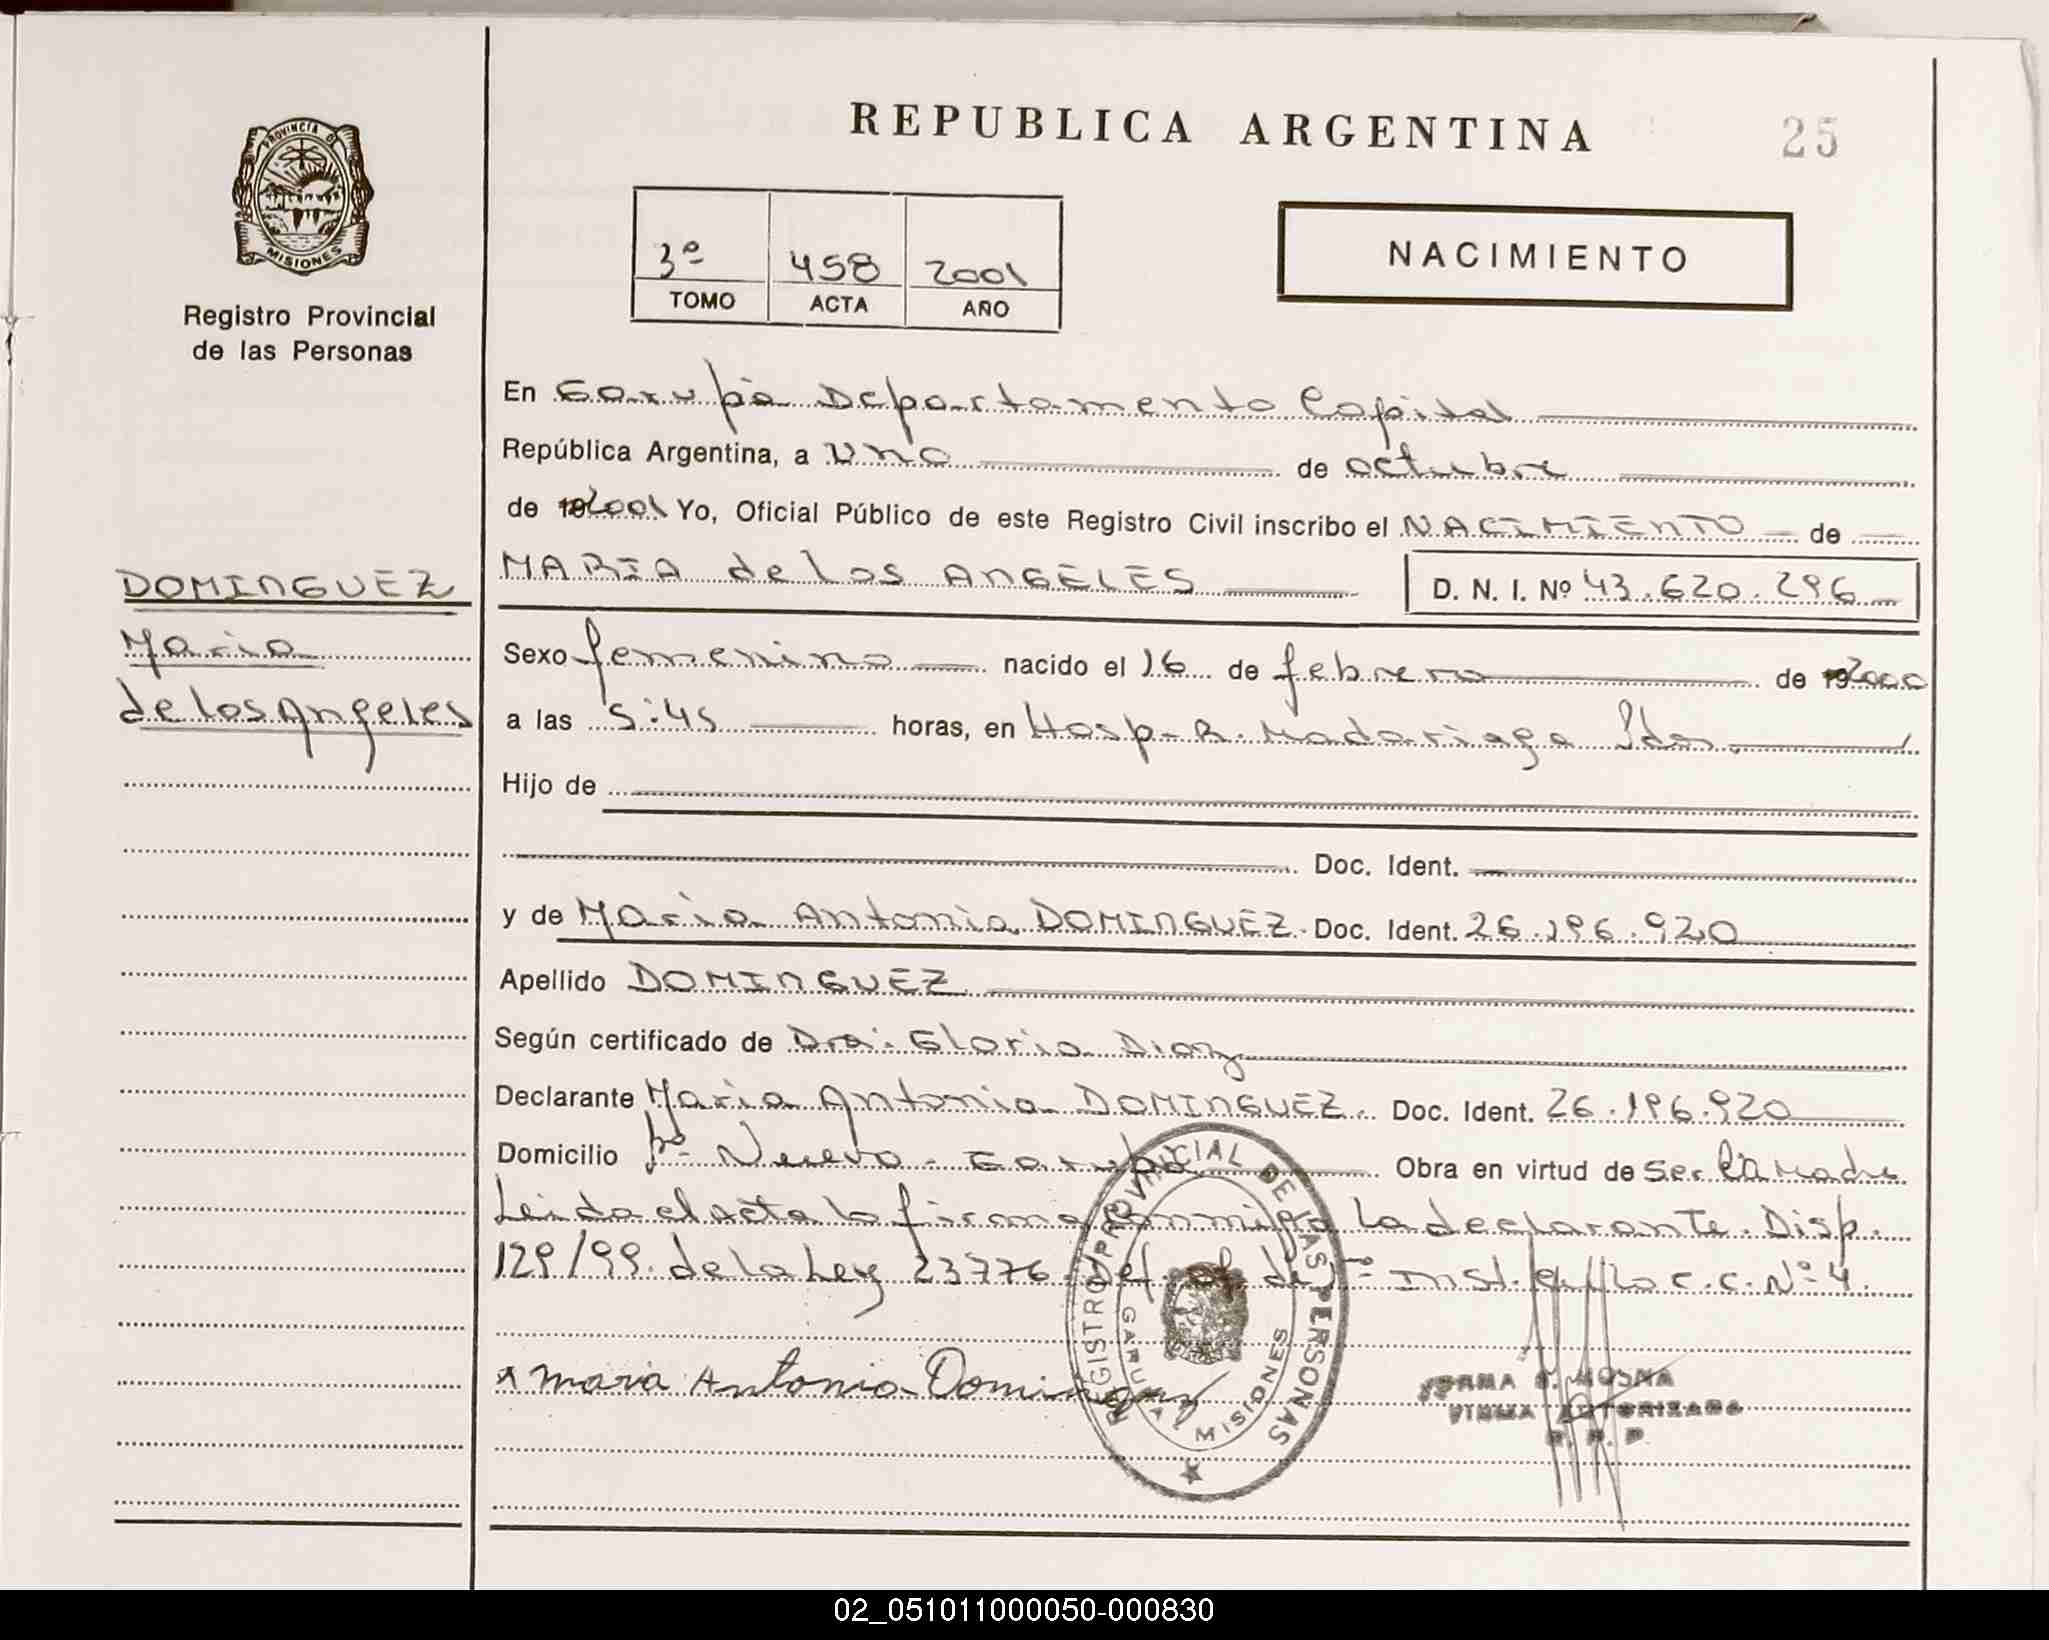 REPUBLICA ARGENTINA
25
PROVINCIA DE
MISIONES
Registro Provincial
de las Personas
3º 458 2001
TOMO ACTA AÑO
NACIMIENTO
En Garupá Departamento Capital
República Argentina, a uno de octubre
de 2001 Yo, Oficial Público de este Registro Civil inscribo el NACIMIENTO de
MARIA de los ANGELES D. N. I. Nº 43.620.296
DOMINGUEZ
Maria
de los Angeles
Sexo femenino nacido el 16 de febrero de 2000
a las 5:45 horas, en Hosp. R. Madariaga Pdas.
Hijo de
Doc. Ident.
y de Maria Antonia DOMINGUEZ Doc. Ident. 26.196.920
Apellido DOMINGUEZ
Según certificado de Dra. Gloria Diaz
Declarante Maria Antonia DOMINGUEZ Doc. Ident. 26.196.920
Domicilio Bº Nuevo - Garupá Obra en virtud de Ser la Madre
Leida el acta la firma conmigo la declarante. Disp.
129/99. de la Ley 23776 Def. of. de 1º Inst. en lo C.C. Nº 4.
x Maria Antonia Dominguez
REGISTRO PROVINCIAL DE LAS PERSONAS
GARUPA MISIONES
MOSNA
FIRMA AUTORIZADA
R. P. P.
02_051011000050-000830